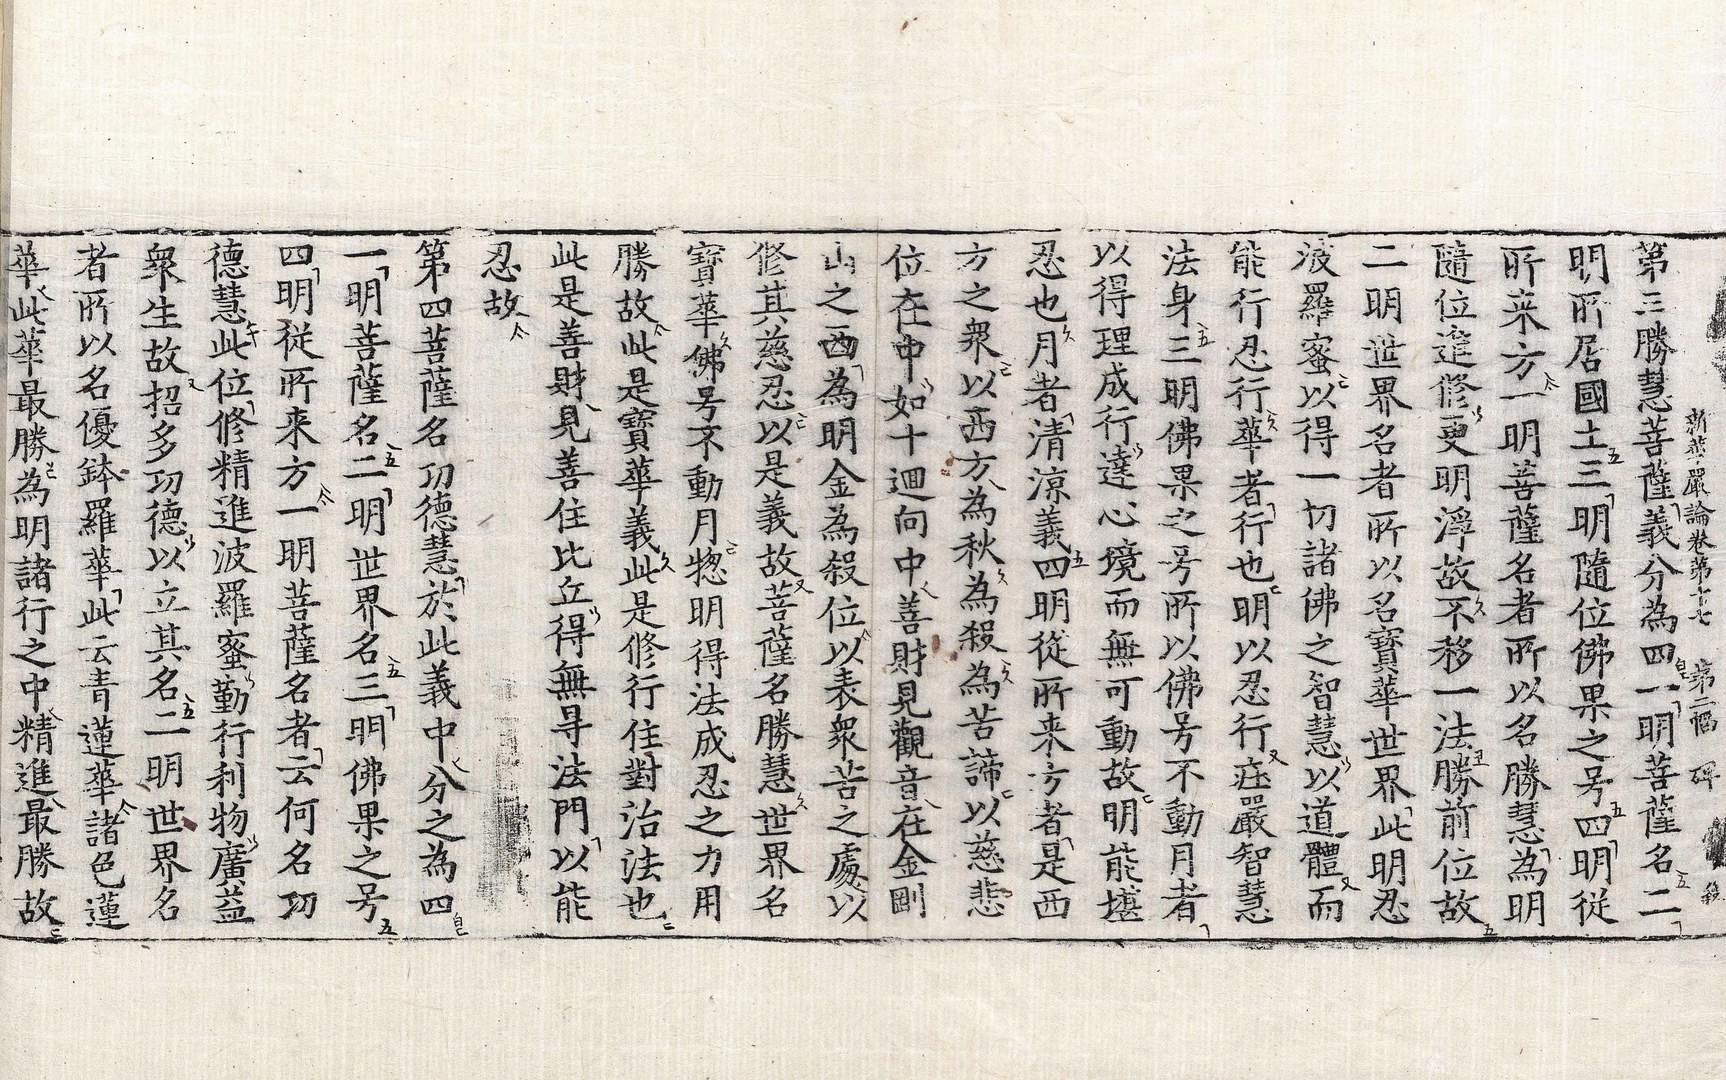 新華嚴論卷第十七 第二幅 碑
第三勝慧菩薩義分為四一明菩薩名二
明所居國土三明隨位佛果之号四明從
所来方一明菩薩名者所以名勝慧為明
隨位進修更明淨故不移一法勝前位故
二明世界名者所以名寶華世界此明忍
波羅蜜以得一切諸佛之智慧以道體而
能行忍行華者行也明以忍行庄嚴智慧
法身三明佛果之号所以佛号不動月者
以得理成行達心境而無可動故明能堪
忍也月者清涼義四明從所来方者是西
方之衆以西方為秋為殺為苦諦以慈悲
位在中如十迴向中善財見觀音在金剛
山之西為明金為殺位以表衆苦之處以
修其慈忍以是義故菩薩名勝慧世界名
寶華佛号不動月惣明得法成忍之力用
勝故此是寶華義此是修行住對治法也
此是善財見善住比丘得無㝵法門以能
忍故
第四菩薩名功德慧於此義中分之為四
一明菩薩名二明世界名三明佛果之号
四明從所来方一明菩薩名者云何名功
德慧此位修精進波羅蜜勤行利物廣益
衆生故招多功德以立其名二明世界名
者所以名優鉢羅華此云青蓮華諸色蓮
華此華最勝為明諸行之中精進最勝故